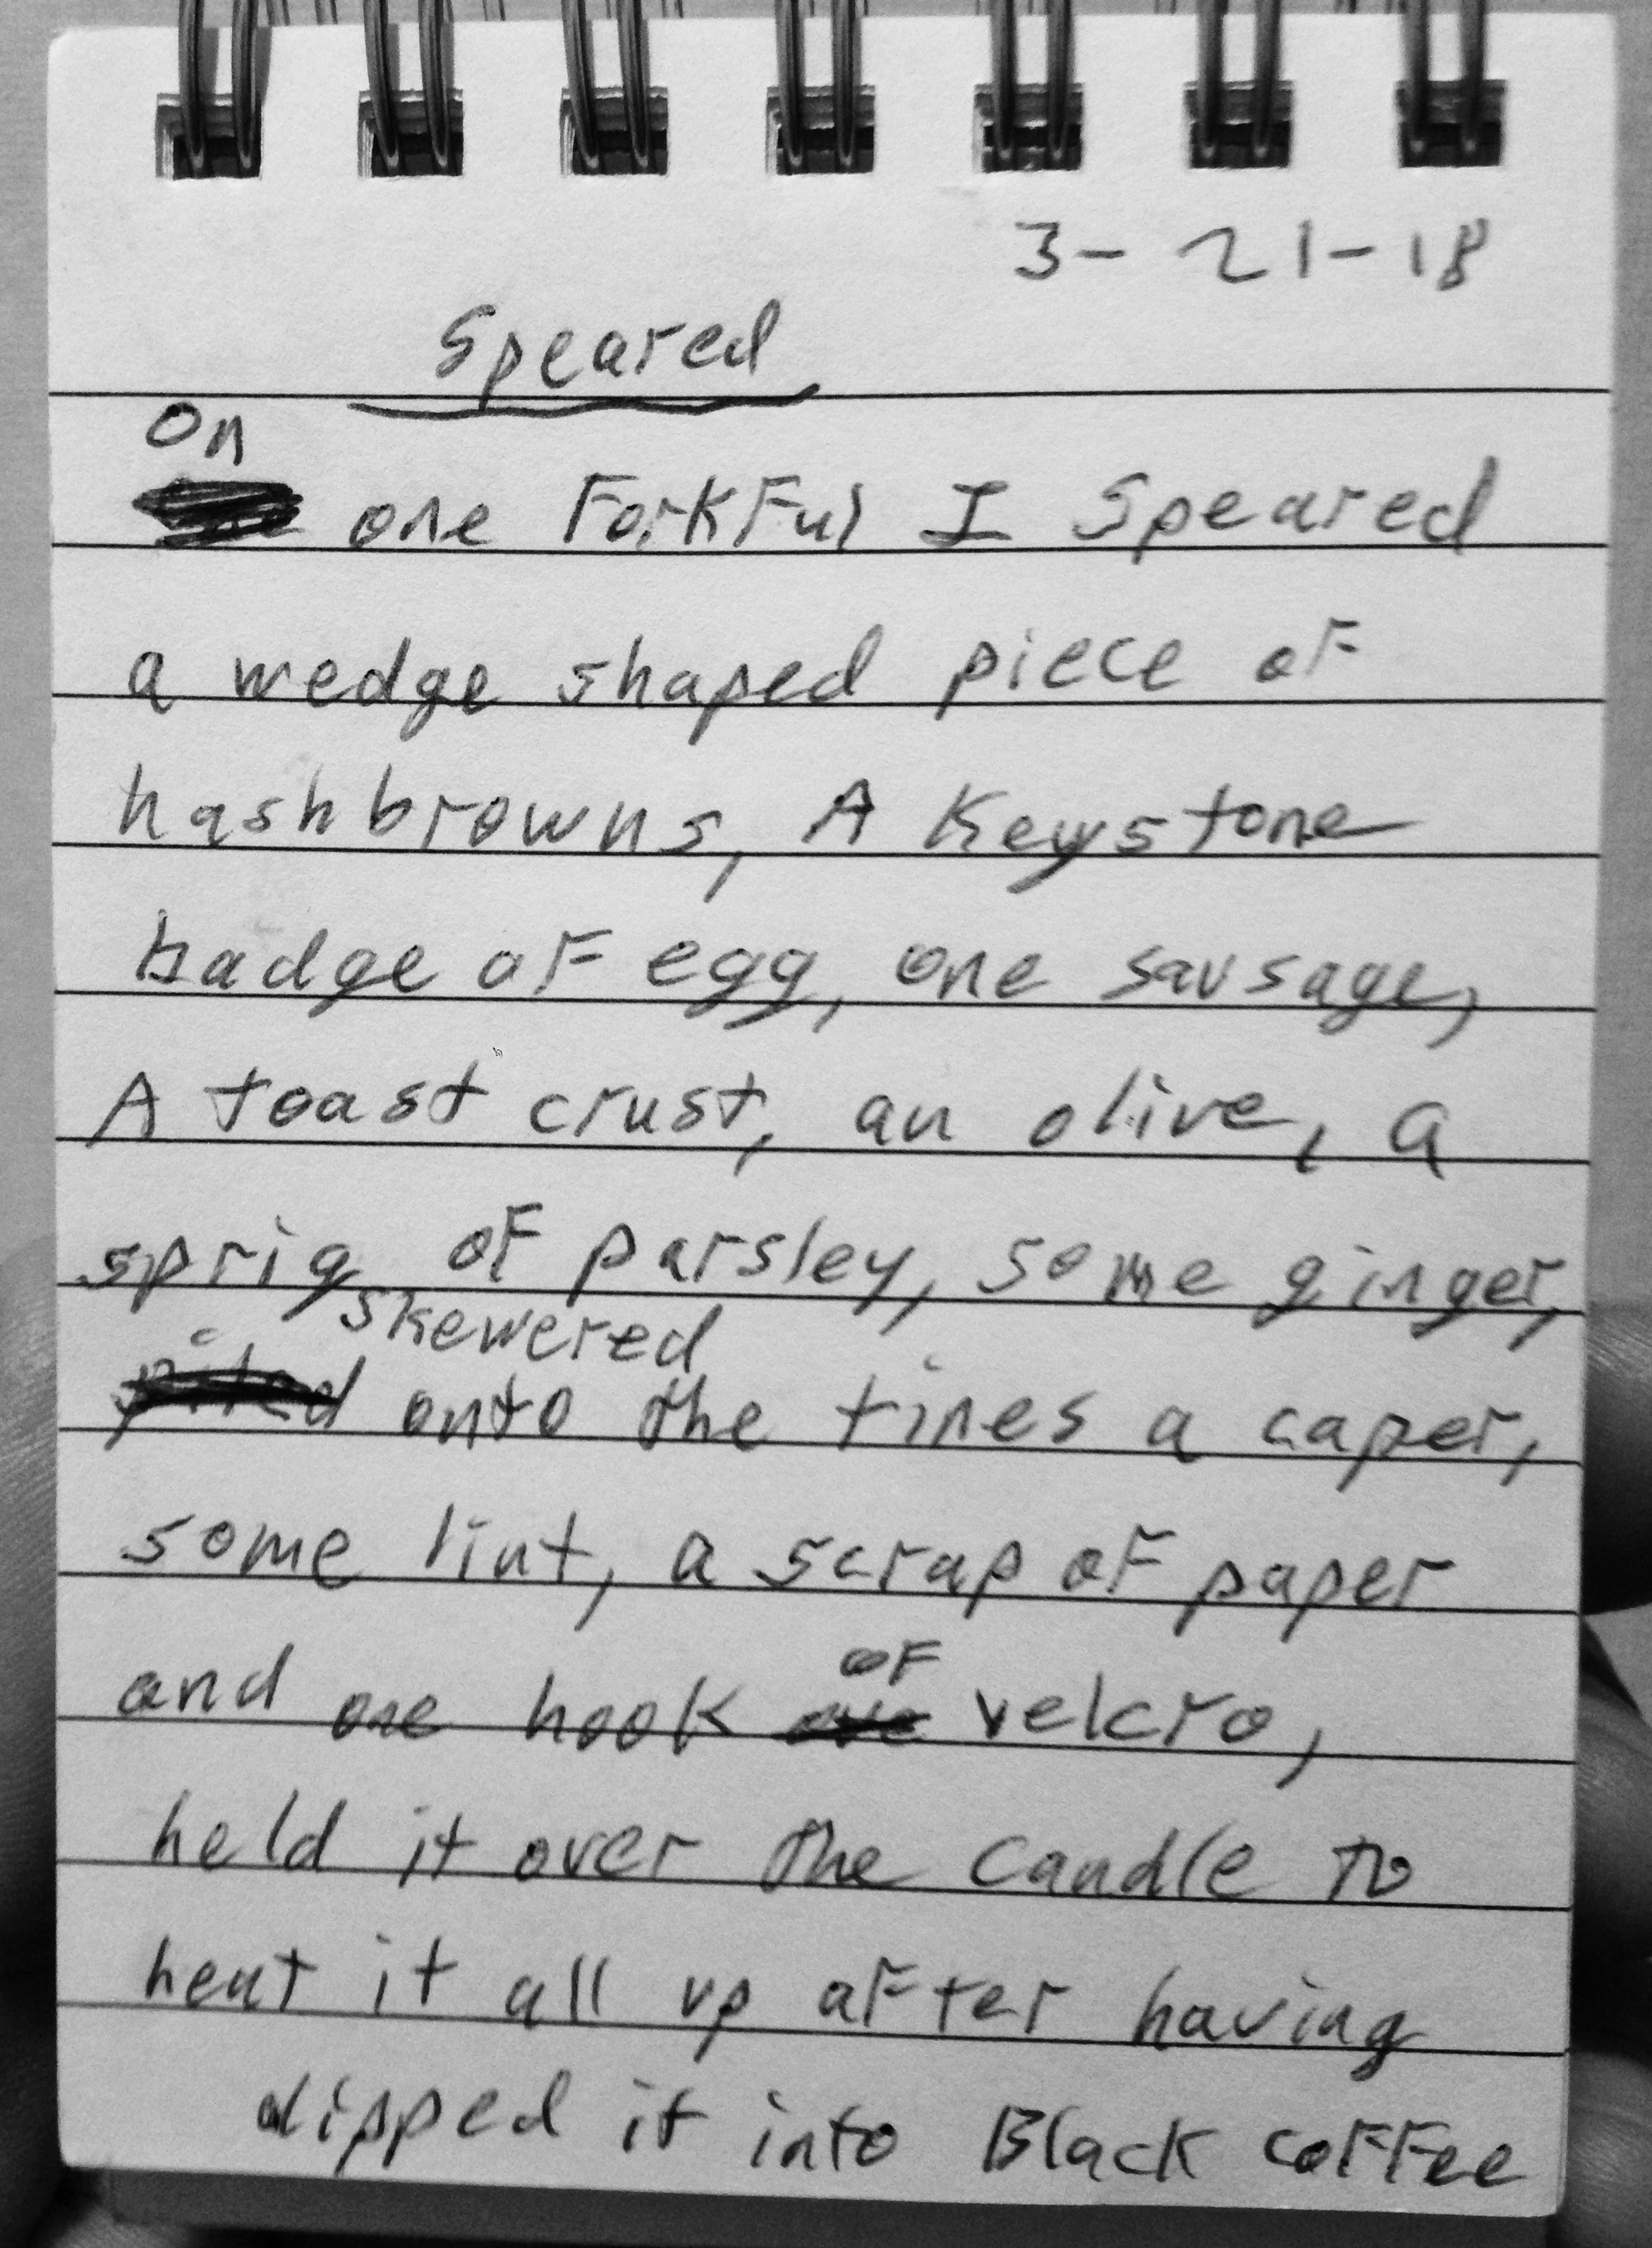 3-21-18
Speared
On
one Forkful I Speared
a wedge shaped piece of
hashbrowns, A Keystone
badge of egg, one sausage,
A toast crust, an olive, a
sprig of parsley, some ginger,
skewered
piled onto the tines a caper,
some lint, a scrap of paper
of
and one hook velcro,
held it over the candle to
heat it all up after having
dipped it into Black coffee